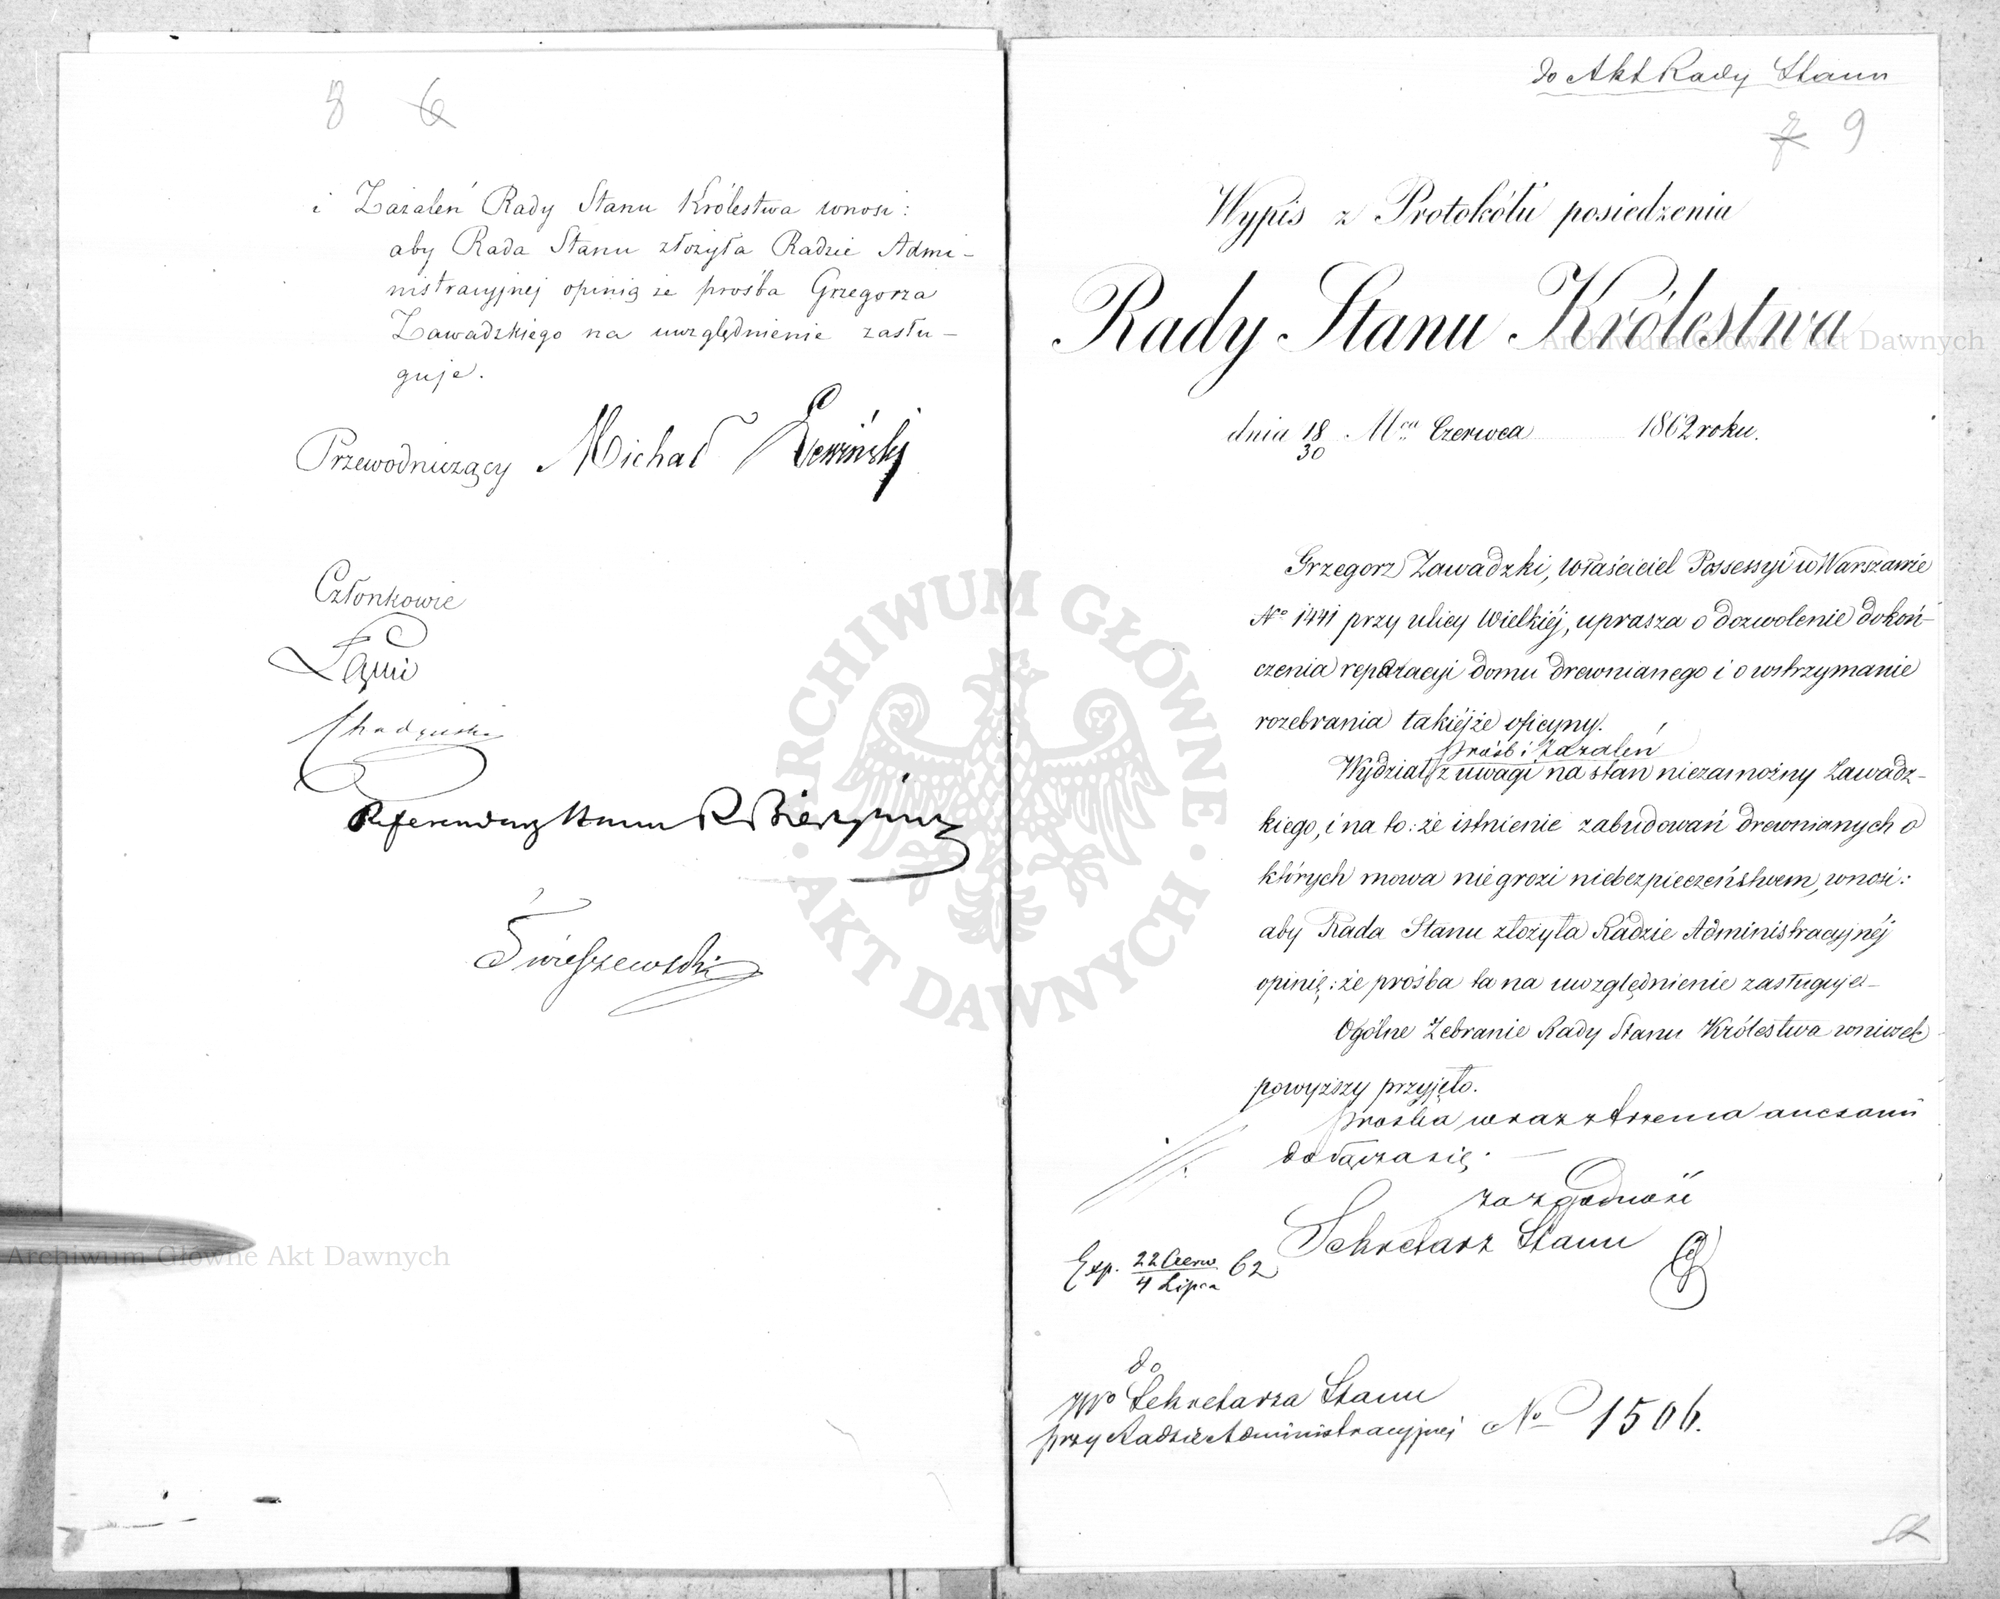 8 6
i Zażaleń Rady Stanu Królestwa wnosi:
aby Rada Stanu złożyła Radzie Admi-
nistracyjnej opinią że prośba Grzegorza
Zawadzkiego na uwzględnienie zasłu-
guje.
Przewodniczący Michał
Członkowie
Łęski
Referendarz Stanu R
do Akt Rady Stanu
7 9
Wypis z Protokółu posiedzenia
Rady Stanu Królestwa
dnia 18/30 Mca Czerwca 1862 roku.
Grzegorz Zawadzki, właściciel Possessyi w Warszawie
No 1441 przy ulicy Wielkiéj, uprasza o dozwolenie dokoń-
czenia reparacyi domu drewnianego i o wstrzymanie
rozebrania takiéjże oficyny.
próśb i zażaleń
Wydział z uwagi na stan niezamożny Zawadz-
kiego, i na to: że istnienie zabudowań drewnianych o
których mowa nie grozi niebezpieczeństwem, wnosi:
aby Rada Stanu złożyła Radzie Administracyjnéj
opinię: że prośba ta na uwzględnienie zasługuje.
Ogólne Zebranie Rady Stanu Królestwa wniosek
powyższy przyjęło.
Prośba wraz z trzema anexami
dołącza się.
za zgodność
Sekretarz Stanu
Exp. 22 Czerw./4 Lipca 62
do
JWo Sekretarza Stanu
przy Radzie Administracyjnej No 1506.
Archiwum Główne Akt Dawnych
Archiwum Główne Akt Dawnych
ARCHIWUM GŁÓWNE
AKT DAWNYCH